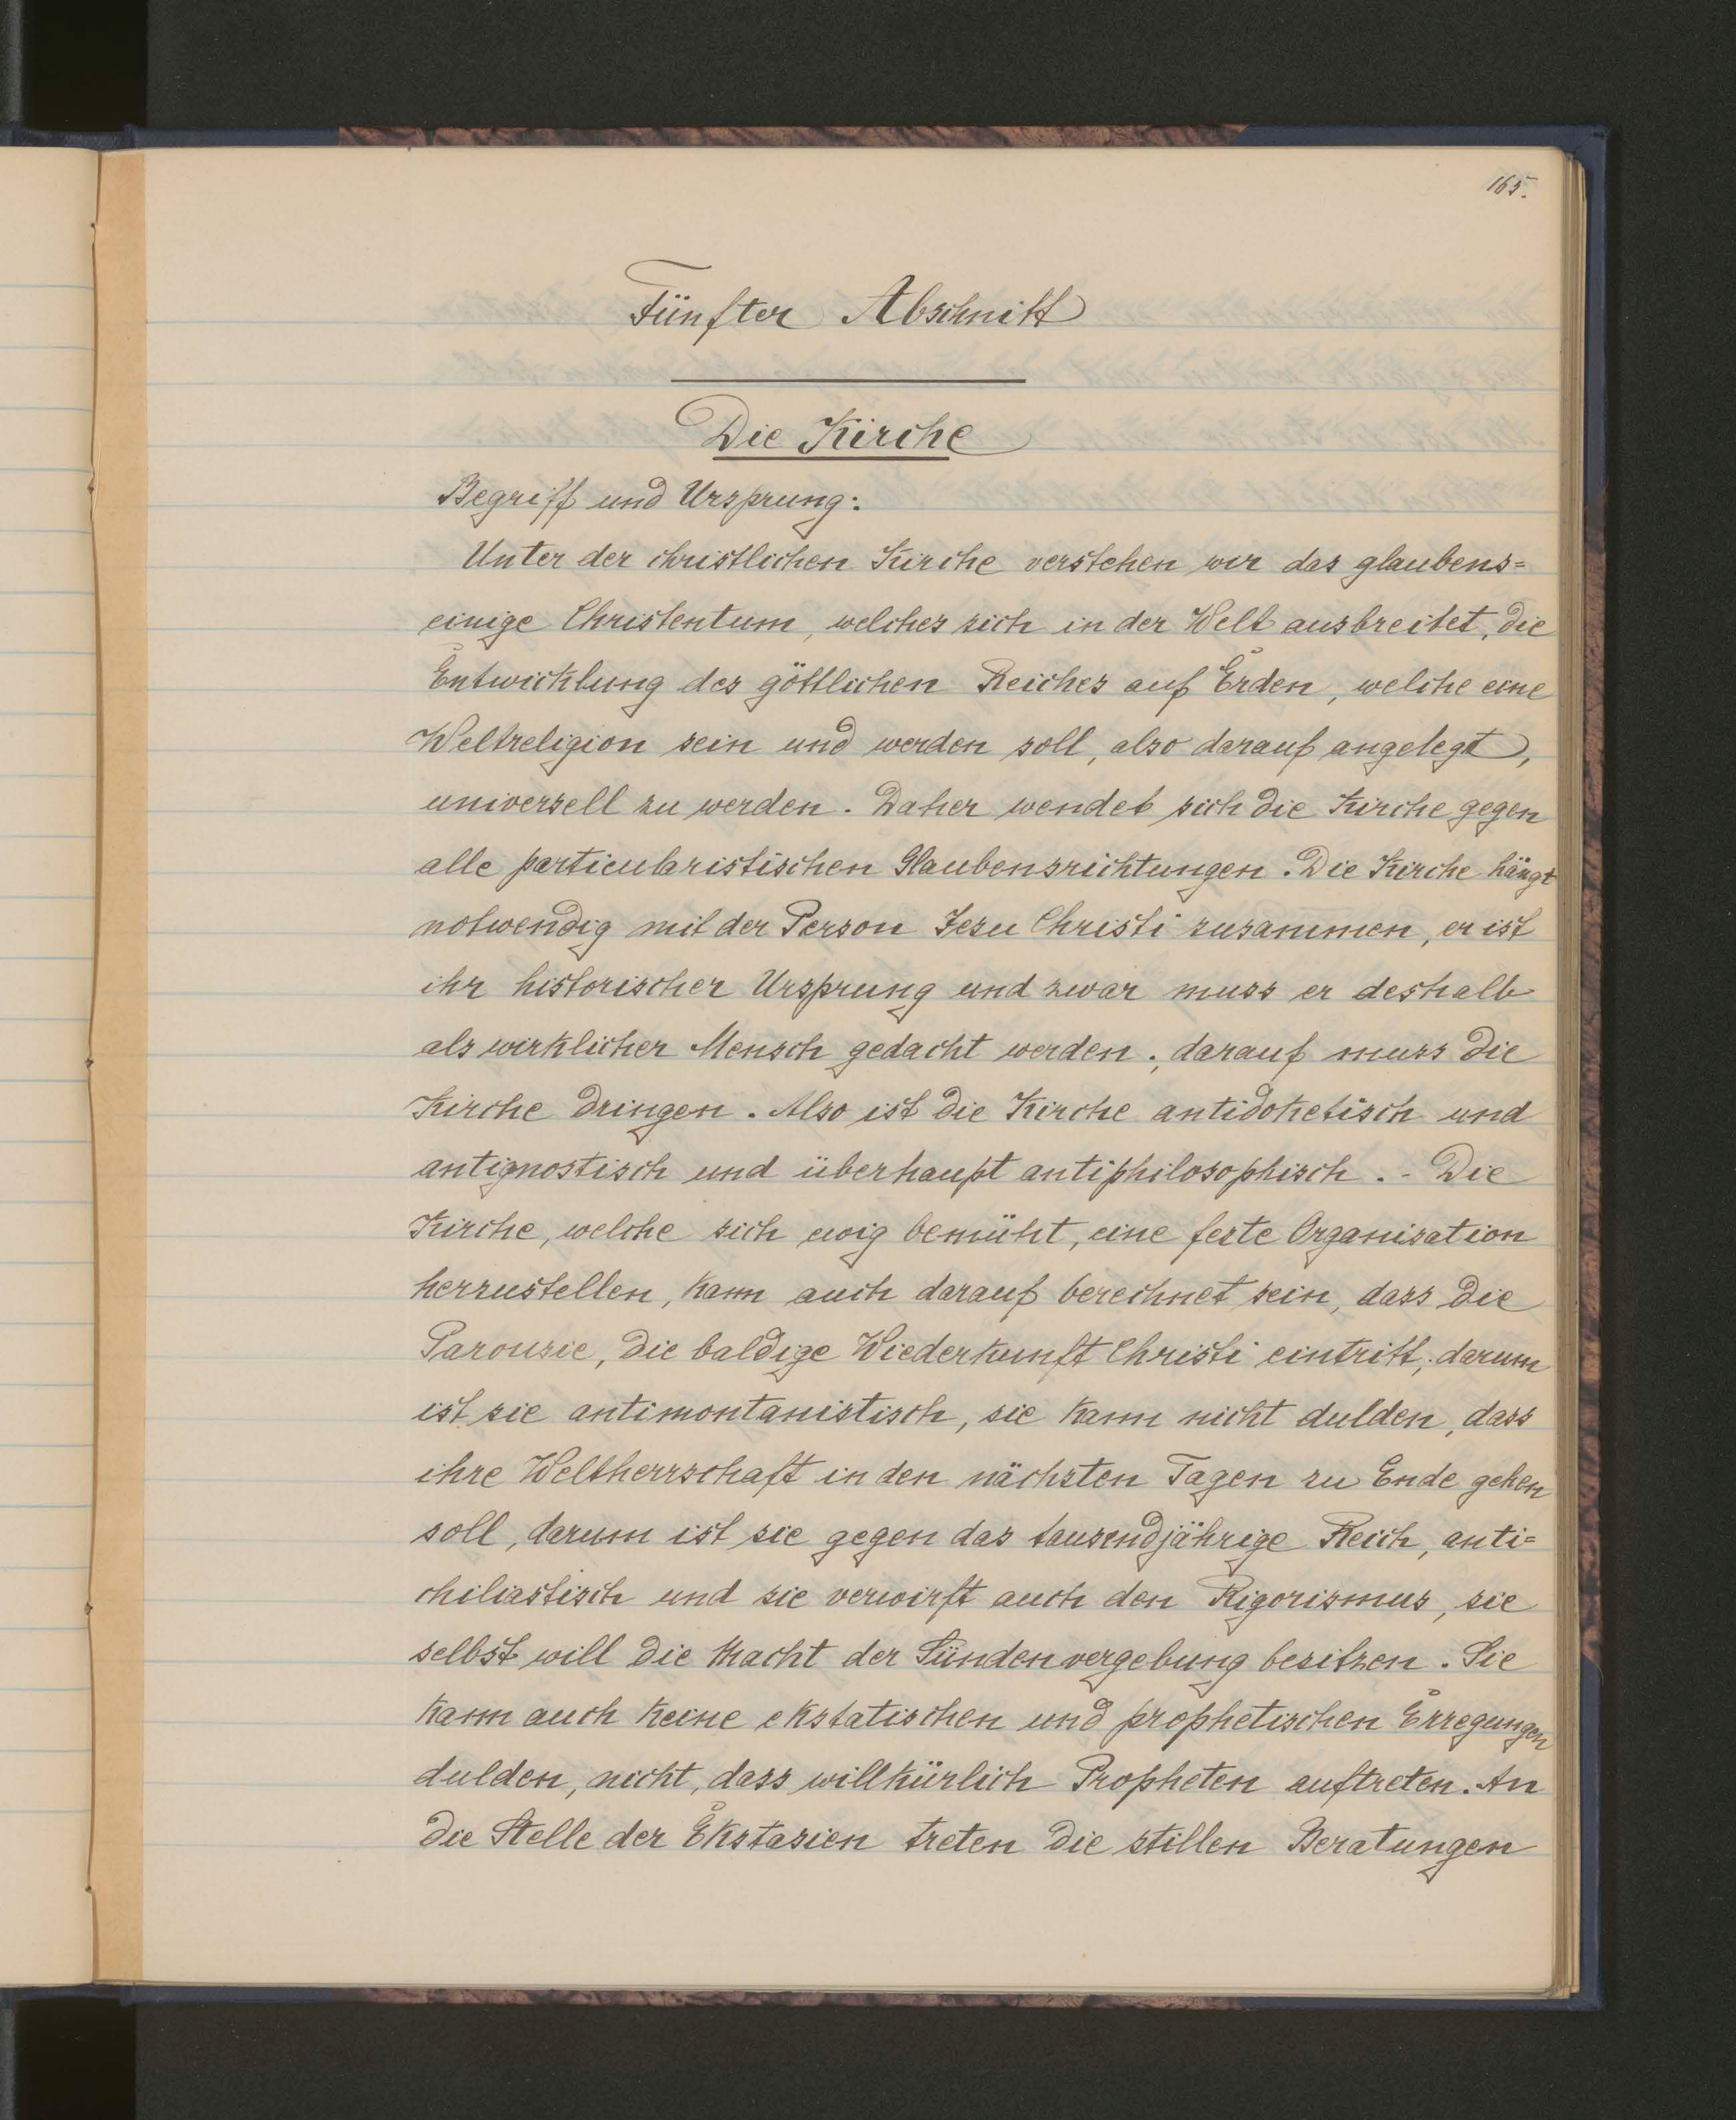 165.
Fünfter Abschnitt
Die Kirche
Begriff und Ursprung:
Unter der christlichen Kirche verstehen wir das glaubens=
einige Christentum, welches sich in der Welt ausbreitet, die
Entwicklung des göttlichen Reiches auf Erden, welche eine
Weltreligion sein und werden soll, also darauf angelegt,
universell zu werden. Daher wendet sich die Kirche gegen
alle particularistischen Glaubensrichtungen. Die Kirche hängt
notwendig mit der Person Jesu Christi zusammen, er ist
ihr historischer Ursprung und zwar muss er deshalb
als wirklicher Mensch gedacht werden; darauf muss die
Kirche dringen. Also ist die Kirche antidoketisch und
antignostisch und überhaupt antiphilosophisch. - Die
Kirche, welche sich ewig bemüht, eine feste Organisation
herzustellen, kann auch darauf berechnet sein, dass die
Parousie, die baldige Wiederkunft Christi eintritt; darum
ist sie antimontanistisch, sie kann nicht dulden, dass
ihre Weltherrschaft in den nächsten Tagen zu Ende gehen
soll, darum ist sie gegen das tausendjährige Reich, anti=
chiliastisch und sie verwirft auch den Rigorismus, sie
selbst will die Macht der Sündenvergebung besitzen. Sie
kann auch keine ekstatischen und prophetischen Erregungen
dulden, nicht, dass willkürlich Propheten auftreten. An
die Stelle der Ekstasien treten die stillen Beratungen